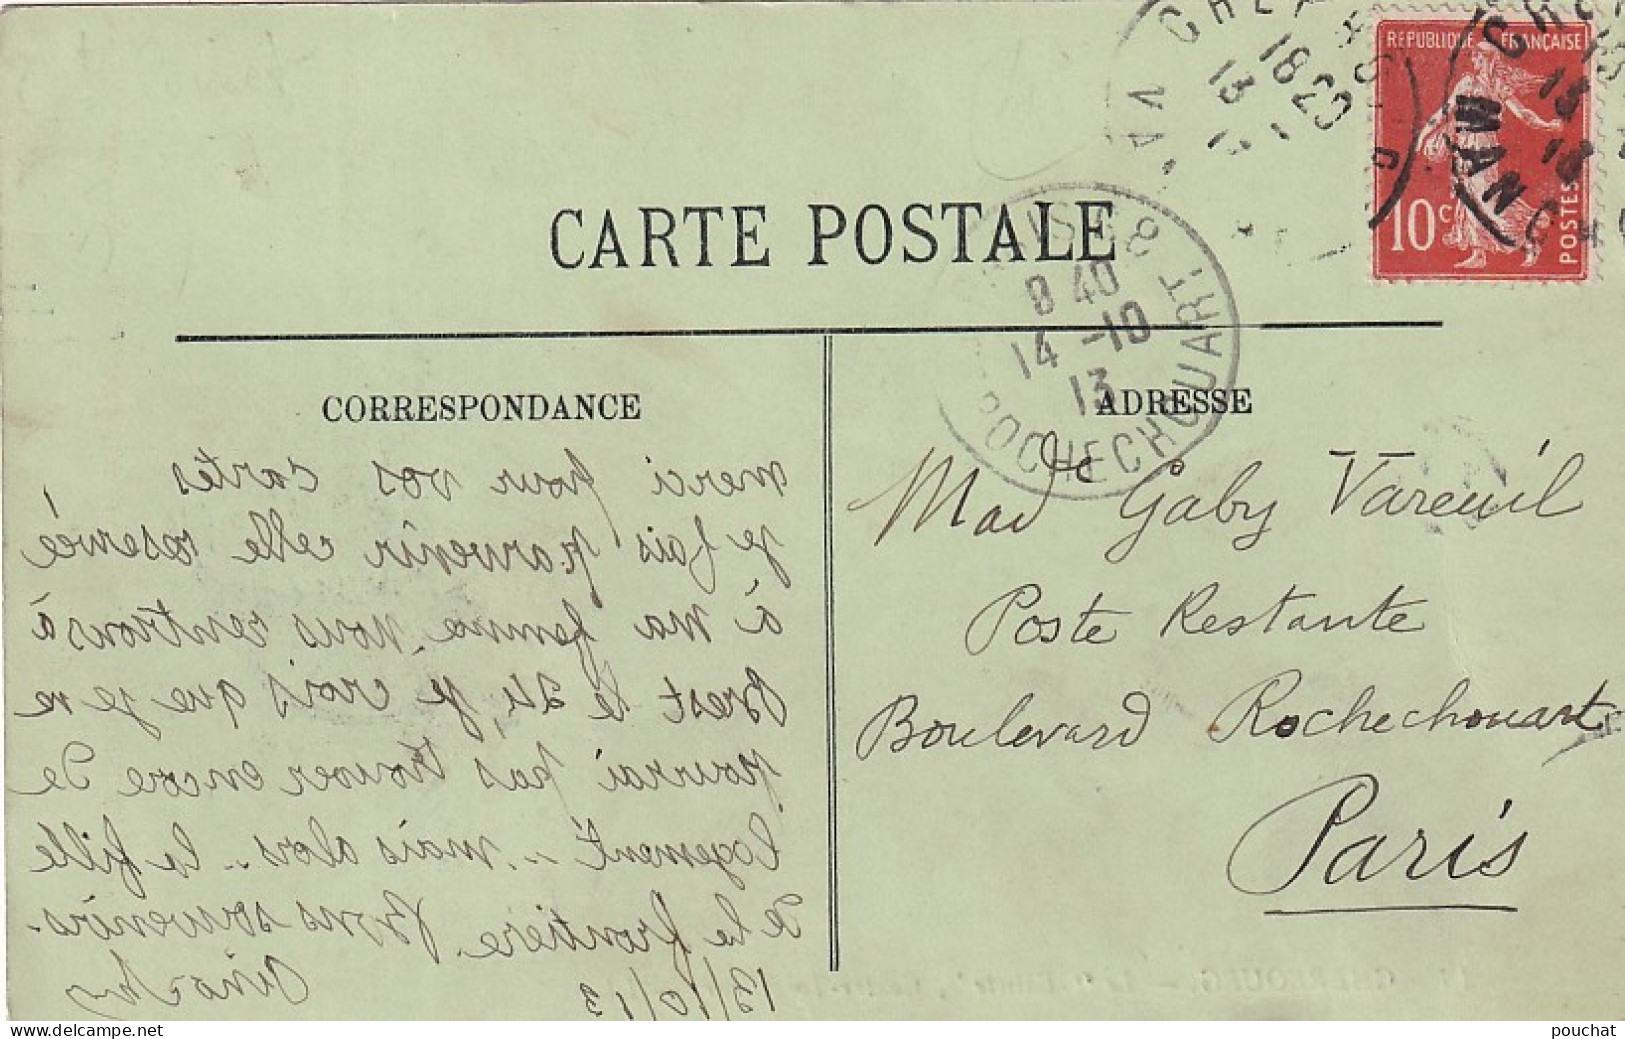 REPUBLIQUE FRANÇAISE
10c POSTES
MAN
CARTE POSTALE
8 40
14 -10
13
ROCHECHOUART
CORRESPONDANCE
ADRESSE
merci pour vos cartes
je fais parvenir celle réservée
à ma femme. nous rentrons à
Brest le 24, je crois que je ne
pourrai pas trouver encore de
logement .. mais alors .. la fille
de la frontière. Bons souvenirs.
13/10/13
Mad lle Gaby Vareuil
Poste Restante
Boulevard Rochechouart
Paris
pouchat
www.delcampe.net